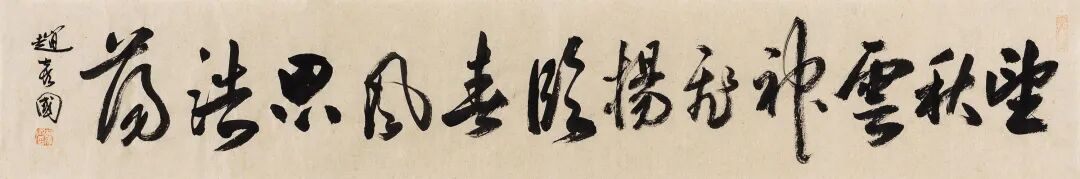 望秋雲神飛揚臨春風思浩蕩
趙喜國